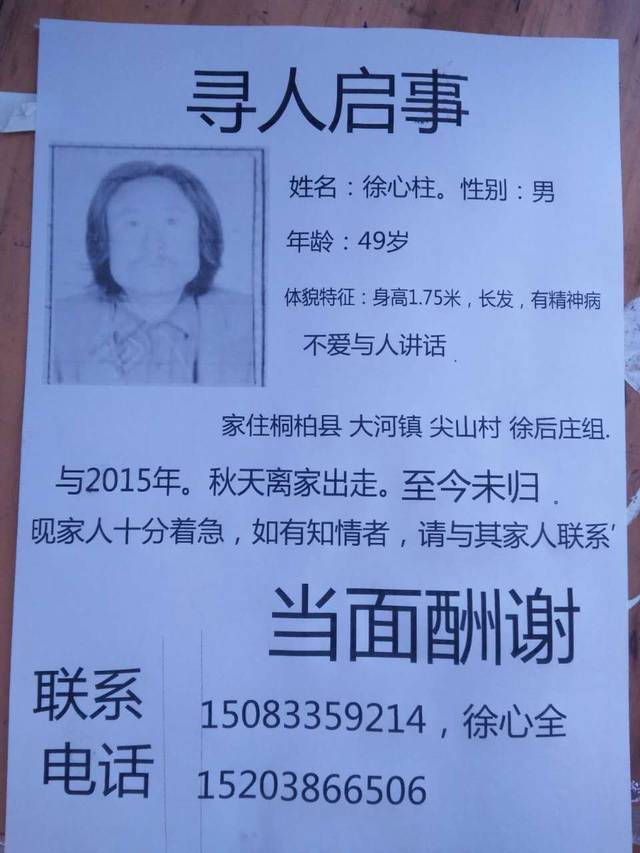 寻人启事
姓名：徐心柱。性别：男
年龄：49岁
体貌特征：身高1.75米，长发，有精神病
不爱与人讲话.
家住桐柏县 大河镇 尖山村 徐后庄组.
与2015年。秋天离家出走。至今未归.
现家人十分着急，如有知情者，请与其家人联系'
当面酬谢
联系
电话
15083359214，徐心全
15203866506